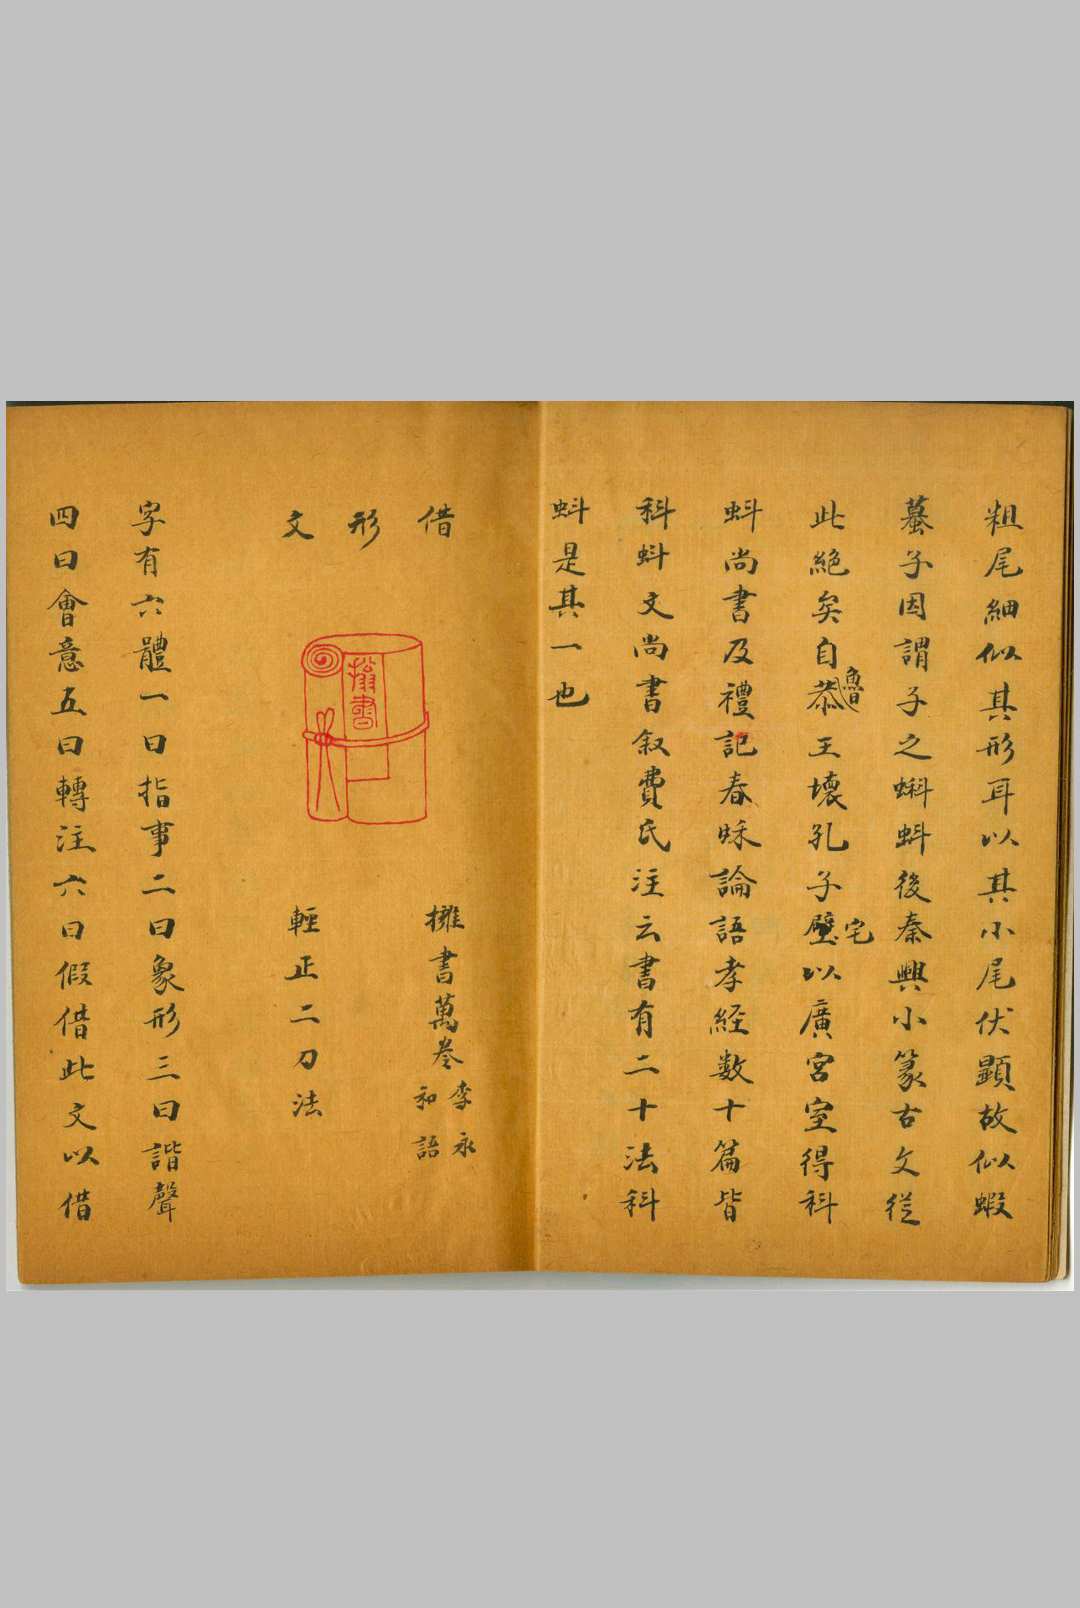 粗尾細似其形耳以其小尾伏顯故似蝦
蟇子因謂子之蝌蚪後秦興小篆古文從
此絕矣自魯恭王壞孔子宅壁以廣宮室得科
蚪尚書及禮記春秋論語孝経数十篇皆
科蚪文尚書叙費氏注云書有二十法科
蚪是其一也
借形文
擁書
擁書萬巻
李永
和語
輕正二刀法
字有六體一曰指事二曰象形三曰諧聲
四曰會意五曰轉注六曰假借此文以借